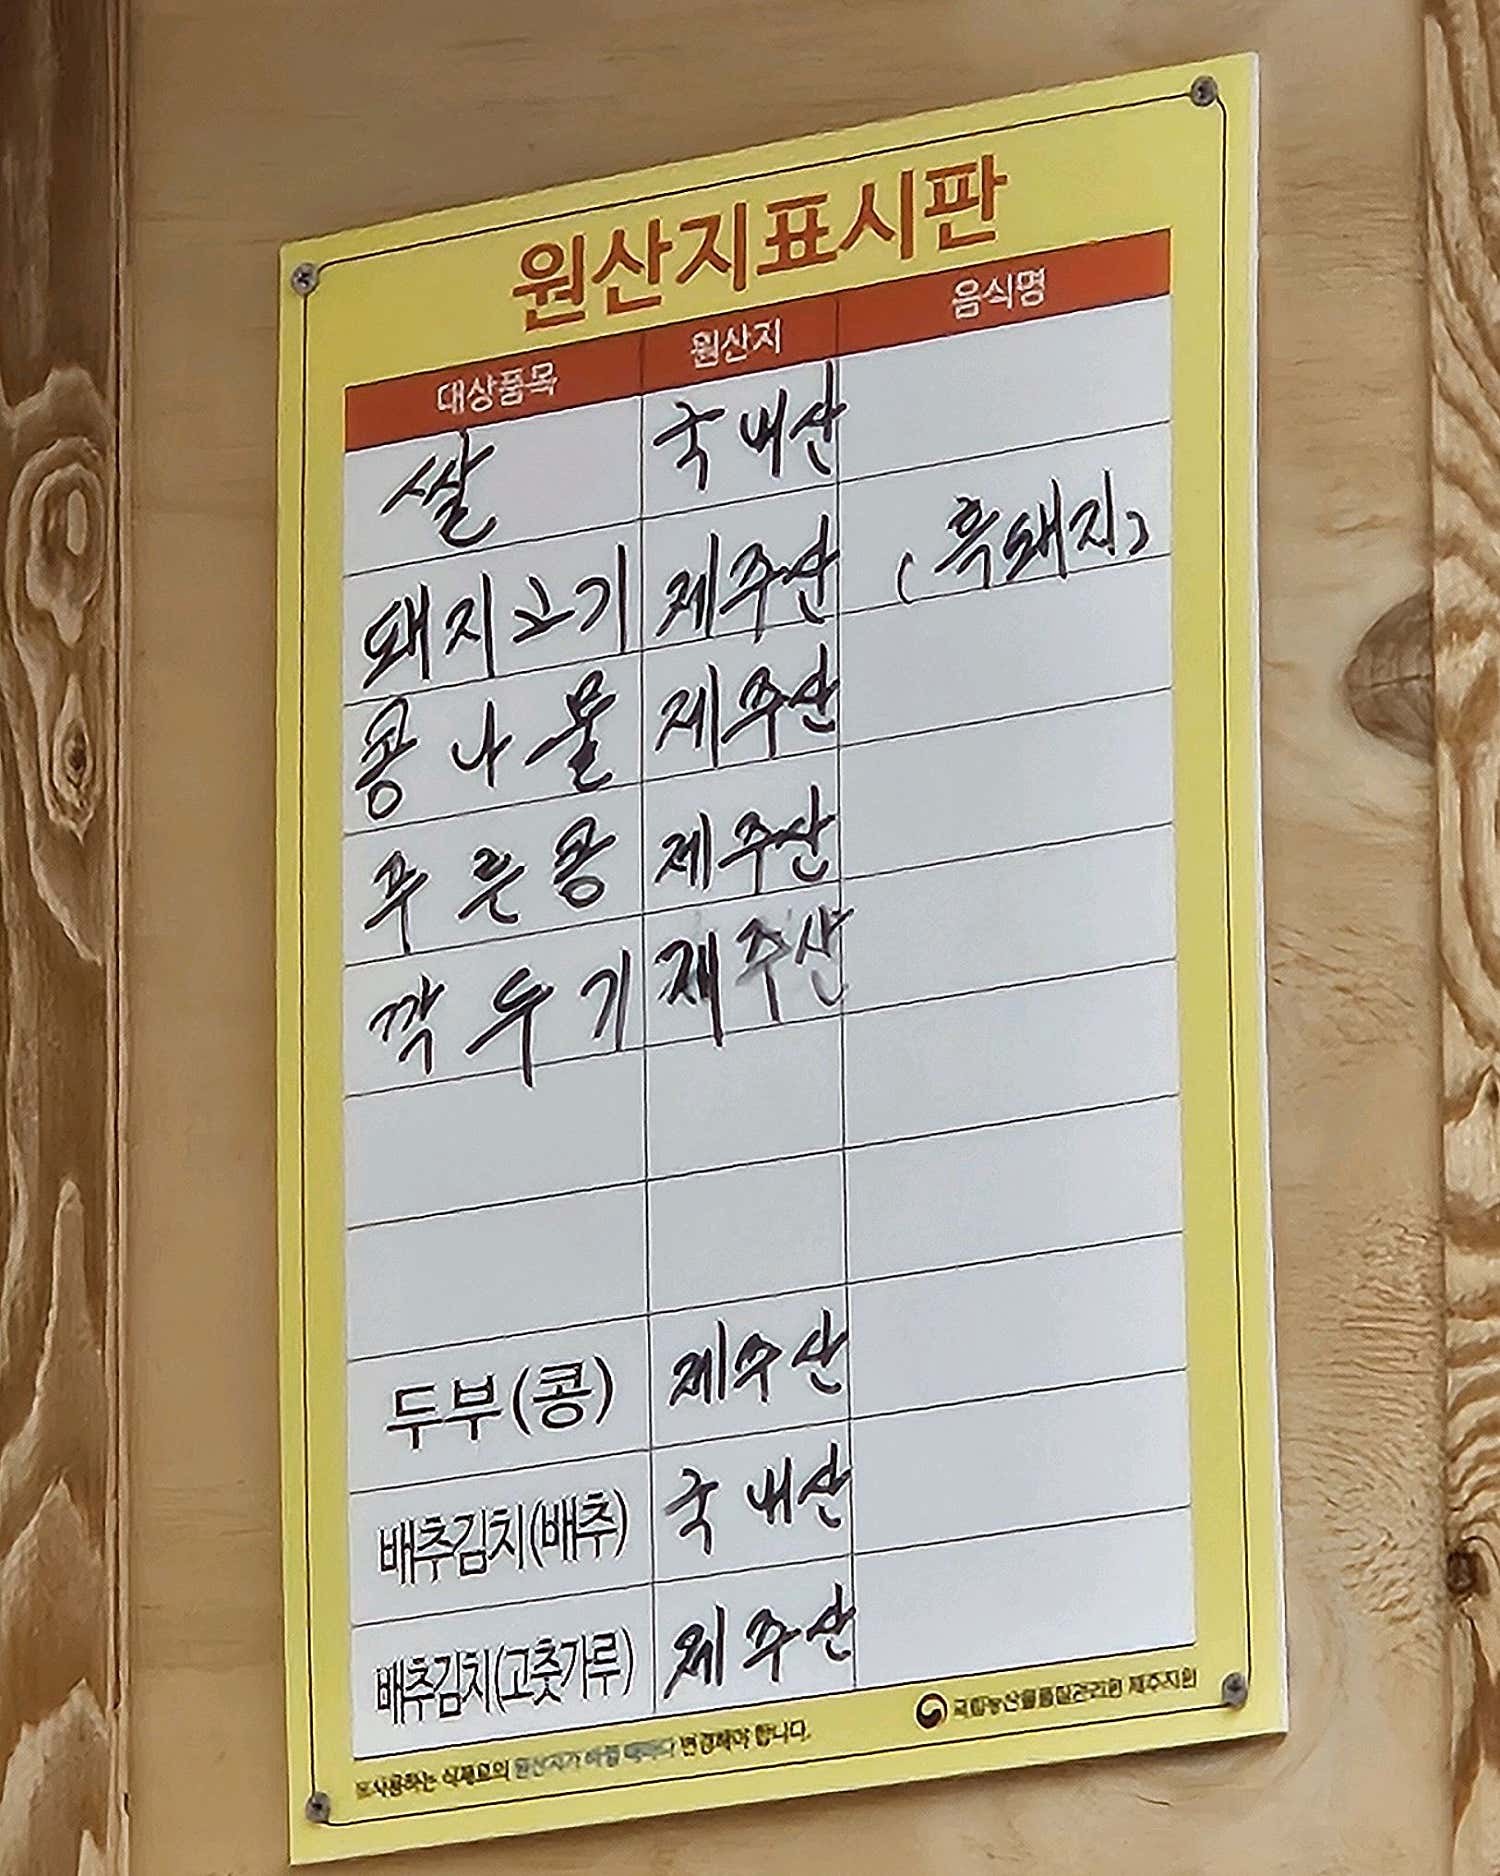 원산지표시판
대상품목 원산지 음식명
쌀 국내산
돼지고기 제주산 (흑돼지)
콩나물 제주산
푸른콩 제주산
깍두기 제주산
두부(콩) 제주산
배추김치(배추) 국내산
배추김치(고춧가루) 제주산
※사용하는 식재료의 원산지가 바뀔 때마다 변경해야 합니다.
국립농산물품질관리원 제주지원